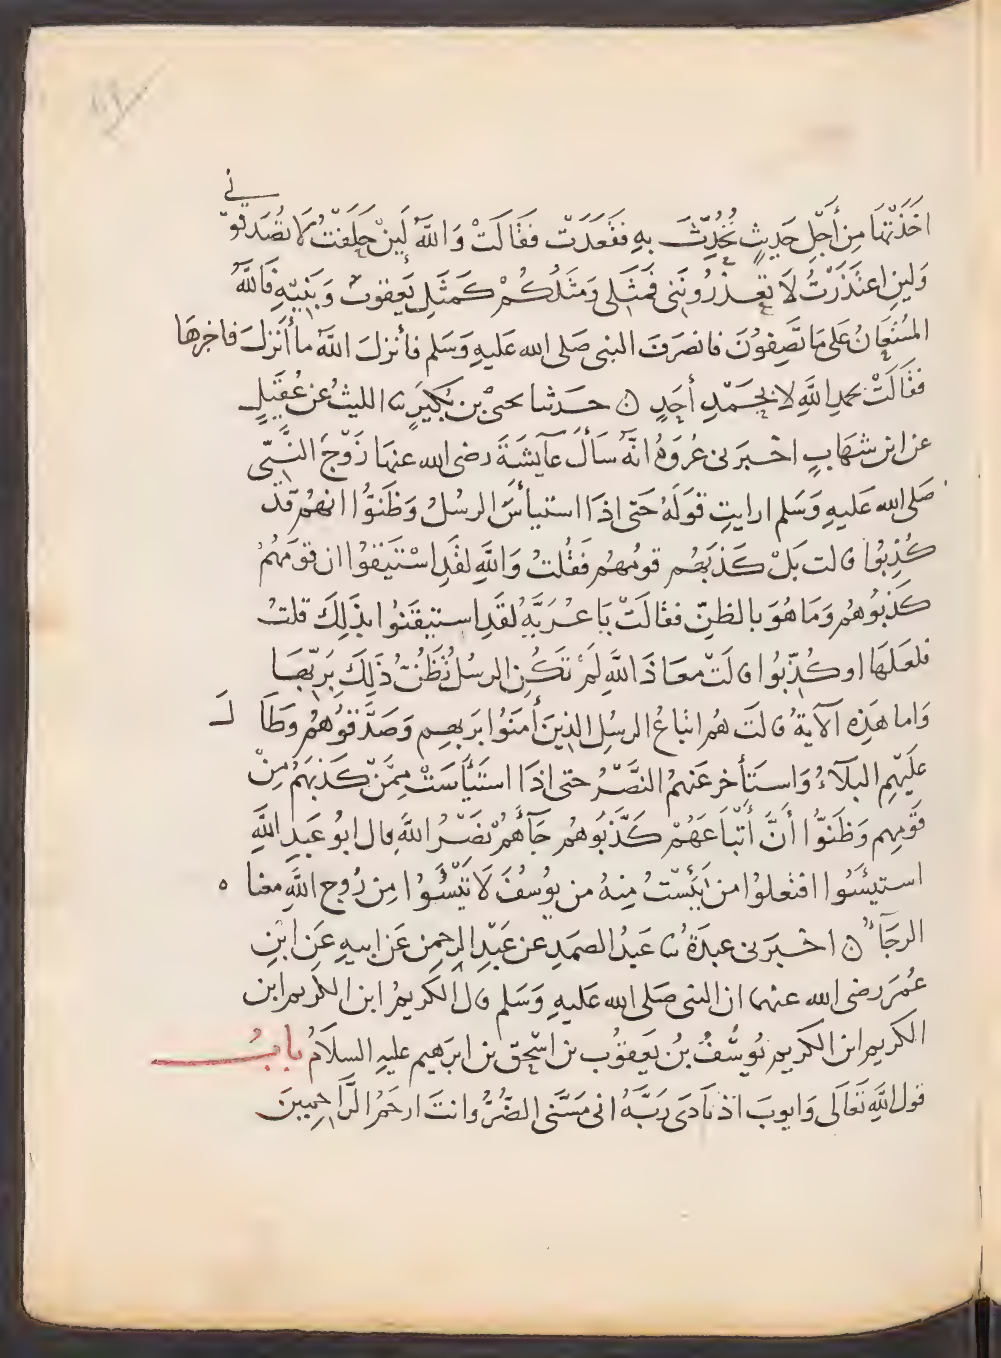 اخَذَتْهَا مِن أَجْلِ حَدِيثٍ تُحُدِّثَ بِهِ فَقَعَدَتْ فَقَالَتْ وَاللَّهِ لَئِنْ حَلَفْتُ لَا تُصَدِّقُونِي
وَلَئِنِ اعْتَذَرْتُ لَا تَعْذِرُونَنِي فَمَثَلِي وَمَثَلُكُمْ كَمَثَلِ يَعقوبَ وَبَنِيهِ فَاللَّهُ
المُسْتَعَانُ عَلَى مَا تَصِفُونَ فانصَرَفَ النبي صَلى الله عَليهِ وَسَلم فأنزلَ اللَّهُ ما أَنزلَ فاخبرهَا
فَقَالَتْ بحمدِ اللَّهِ لا بِحَمْدِ أَحَدٍ ن حدثنا يحيى بن بُكَيرٍ ثنا الليثُ عن عُقَيلٍ
عن ابن شهَابٍ اخبرنى عُروَةُ انَّهُ سَأَلَ عآيشَةَ رضى الله عنهَا زَوْجَ النَّبِيّ
صَلى الله عَليهِ وَسَلم ارايتِ قولَهُ حَتى اذَا استيأسَ الرسُلُ وَظَنُّوا انهمْ قد
كُذِبُوا قالت بَلْ كَذبَهُم قومُهُم فَقُلتُ وَاللَّهِ لقَدِ اسْتَيقنُوا ان قومَهُمْ
كذبُوهُم وَمَا هُوَ بالظنِّ فقالَتْ يَا عُرَيَّةُ لقَدِ استيقَنُوا بذَلِكَ قلتُ
فلعَلهَا او كُذِّبُوا قالَتْ معَاذَ اللَّهِ لَمْ تكُنِ الرسُلُ تَظُنُّ ذَلِكَ بِرَبِّهَا
وَاما هَذِهِ الآيةُ قالتَ هُم اتباعُ الرسُلِ الذِينَ أمَنُوا بربهِم وَصَدَّقُوهُم وَطَالَ
عَلَيْهِمِ البلَآءُ وَاستَأخر عَنهمُ النَّصْرُ حتى اذَا استَيأَسَتْ مِمَّنْ كَذبَهُمْ مِنْ
قَوْمِهِم وَظَنُّوا أَنَّ أَتْبَاعَهُمْ كَذَّبُوهم جَآءَهُمْ نَصْرُ اللَّهِ قال ابُو عَبدِ اللَّهِ
استيئَسُوا افتعلُوا من يَئِسْتُ مِنهُ من يوسُفَ لَا تَيْئَسُوا مِن رَوحِ اللَّهِ معنا ه
الرجَآءُ ن اخبرَنى عبدَةُ ثنا عَبدُ الصمَدِ عن عَبدِ الرحمنِ عَن ابيهِ عَنِ ابْنِ
عُمَرَ رضى الله عنهما ان النبى صَلى الله عَليهِ وَسَلم قال الكَرِيمُ ابن الكَرِيم ابن
الكريم ابن الكريم يُوسُفُ بنُ يَعقوُب بن اسْحٰق بن ابرَهِيم عليهِ السلَامُ بابُ
قول اللَّهِ تَعَالَى وَايوبَ اذ نَادَى رَبَّهُ انى مَسَّنى الضُّرُّ وانتَ ارحَمُ الرَّاحِمِينَ